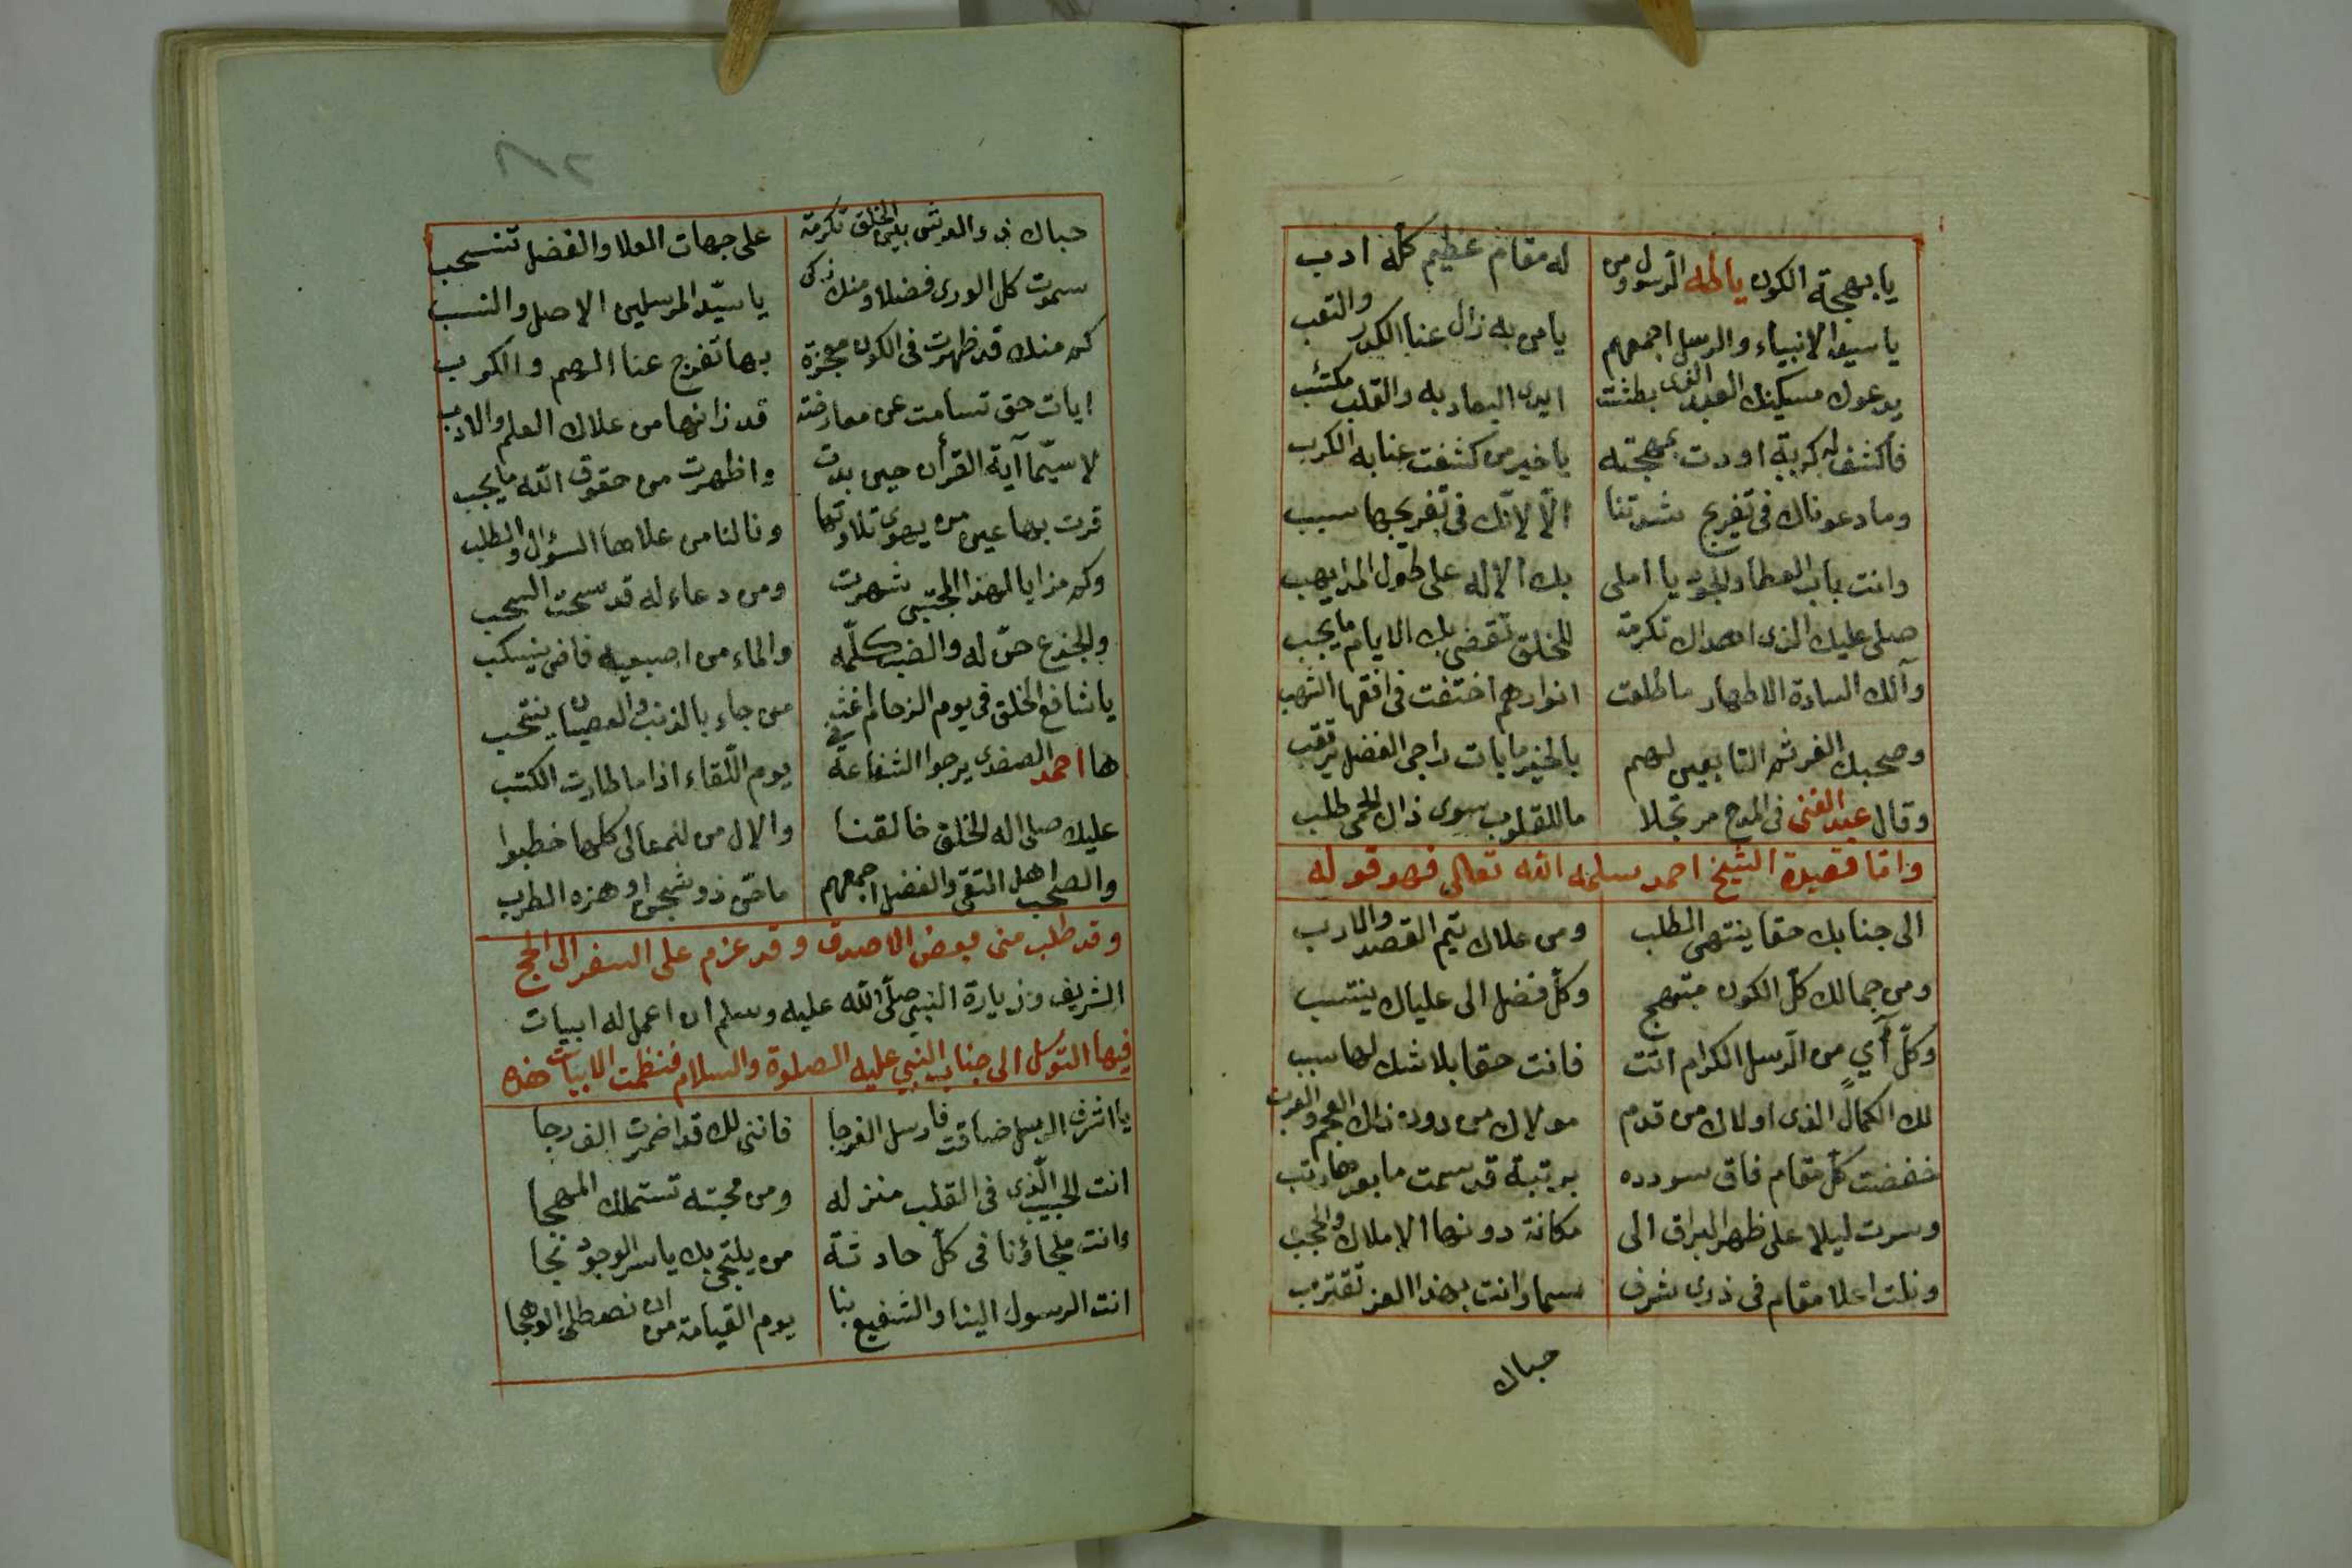 يا بهجة الكون ياطه الرسول ومن له مقام عظيم كله ادب
يا سيد الانبياء والرسل اجمعهم يا من به زال عنا الكدر والتعب
يدعوك مسكينك العبد الذى بطشت ايدى البعاد به والقلب مكتئب
فاكشف له كربة اودت بمهجته يا خير من كشفت عنا به الكرب
وما دعوناك فى تفريج شدتنا الّا لانّك فى تفريجها سبب
وانت باب العطا والجود يا املى بك الاله على طول المدا يهب
صلى عليك الذى اهداك تكرمة للخلق تقضى بك الايام ما يجب
وآلك السادة الاطهار ما طلعت انوارهم اختفت فى افقها الشهب
وصحبك الغر ثم التابعين لهم بالخير ما بات راجى الفضل يرتقب
وقال عبد الغنى فى المدح مرتجلا ما للقلوب سوى ذاك الحمى طلب
وامّا قصيدة الشيخ احمد سلمه الله تعالى فهو قوله
الى جنابك حقا ينتهى الطلب ومن علاك يتم القصد والارب
ومن جمالك كل الكون مبتهج وكلّ فضل الى علياك ينتسب
وكلّ آيٍ من الرسل الكرام اتت فانت حقا بلا شك لها سبب
لك الكمال الذى اولاك من قدم مولاك من دونه ذاك العجم والعرب
خفضت كل مقام فاق سودده برتبة قد سمت ما بعدها رتب
وسرت ليلا على ظهر البراق الى مكانة دونها الاملاك والحجب
ونلت اعلا مقام فى ذرى شرف سما وانت بهذا العز تقترب
حباك
حباك ذو العرش بين الخلق تكرمة على جهات العلا والفضل تنسحب
سموت كل الورى فضلا ومنك زكى يا سيّد المرسلين الاصل والنسب
كم منك قد ظهرت فى الكون معجزة بها تفرج عنا الهم والكرب
ايات حق تسامت عن معارضة قد زانها من علاك العلم والادب
لا سيّما آية القرأن حين بدت واظهرت من حقوق الله ما يجب
قرت بها عين من يهوى تلاوتها ونالنا من علاها السؤل والطلب
وكم مزايا لهذا المجتبى شهرت ومن دعاء له قد سحت السحب
والجذع حنّ له والضب كلّمه والماء من اصبعيه فاض ينسكب
يا شافع الخلق فى يوم الزحام اغث من جاء بالذنب والعصيان ينتحب
ها احمد الصفدى يرجوا الشفاعة فى يوم اللّقاء اذا ما طارت الكتب
عليك صلى اله الخلق خالقنا والال من للمعالى كلها خطبوا
والصحب اهل التقى والفضل اجمعهم ما حنّ ذو شجن او هزه الطرب
وقد طلب منى بعض الاصدقا وقد عزم على السفر الى الحج
الشريف وزيارة النبى صلّى الله عليه وسلم ان اعمل له ابيات
فيها التوسل الى جناب النبي عليه الصلوة والسلام فنظمت الابيات هذه
يا اشرف الرسل ضاقت فارسل الفرجا فاننى لك قد اضمرت الف رجا
انت الحبيب الّذى فى القلب منزله ومن محبته تستملك المهجا
وانت ملجاؤنا فى كلّ حادثة من يلتجى بك يا سر الوجود نجا
انت الرسول الينا والشفيع بنا يوم القيامة من ان نصطلى الوهجا